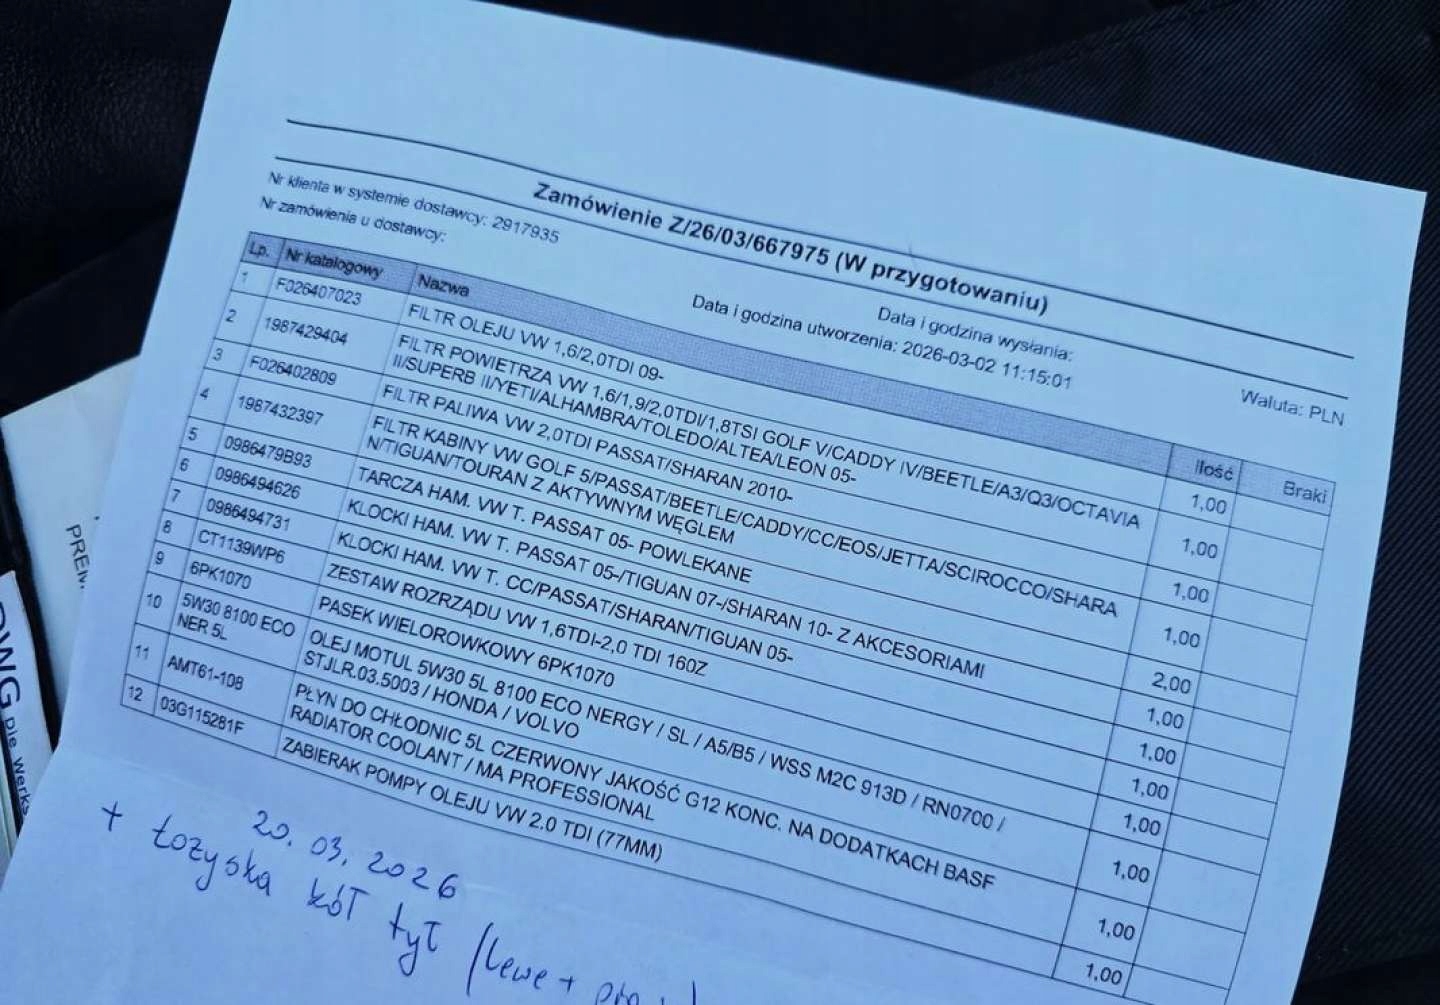 Zamówienie Z/26/03/667975 (W przygotowaniu)
Nr klienta w systemie dostawcy: 2917935
Data i godzina wysłania:
Nr zamówienia u dostawcy:
Data i godzina utworzenia: 2026-03-02 11:15:01
Waluta: PLN
Lp. Nr katalogowy Nazwa Ilość Braki
1 F026407023 FILTR OLEJU VW 1,6/2,0TDI 09- 1,00
2 1987429404 FILTR POWIETRZA VW 1,6/1,9/2,0TDI/1,8TSI GOLF V/CADDY IV/BEETLE/A3/Q3/OCTAVIA 1,00
II/SUPERB II/YETI/ALHAMBRA/TOLEDO/ALTEA/LEON 05-
3 F026402809 FILTR PALIWA VW 2,0TDI PASSAT/SHARAN 2010- 1,00
4 1987432397 FILTR KABINY VW GOLF 5/PASSAT/BEETLE/CADDY/CC/EOS/JETTA/SCIROCCO/SHARA 1,00
N/TIGUAN/TOURAN Z AKTYWNYM WĘGLEM
5 0986479B93 TARCZA HAM. VW T. PASSAT 05- POWLEKANE 2,00
6 0986494626 KLOCKI HAM. VW T. PASSAT 05-/TIGUAN 07-/SHARAN 10- Z AKCESORIAMI 1,00
7 0986494731 KLOCKI HAM. VW T. CC/PASSAT/SHARAN/TIGUAN 05- 1,00
8 CT1139WP6 ZESTAW ROZRZĄDU VW 1,6TDI-2,0 TDI 160Z 1,00
9 6PK1070 PASEK WIELOROWKOWY 6PK1070 1,00
10 5W30 8100 ECO OLEJ MOTUL 5W30 5L 8100 ECO NERGY / SL / A5/B5 / WSS M2C 913D / RN0700 / 1,00
NER 5L STJLR.03.5003 / HONDA / VOLVO
11 AMT61-108 PŁYN DO CHŁODNIC 5L CZERWONY JAKOŚĆ G12 KONC. NA DODATKACH BASF 1,00
RADIATOR COOLANT / MA PROFESSIONAL
12 03G115281F ZABIERAK POMPY OLEJU VW 2.0 TDI (77MM) 1,00
20.03.2026
+ Łożyska kół tył (lewe +
Die Werks